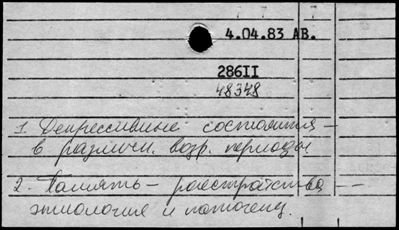 4.04.83 АВ.
286II
48348
1. Депрессивные состояния –
в различн. возр. периоды.
2. Память – расстройства – –
этиология и патогенез.